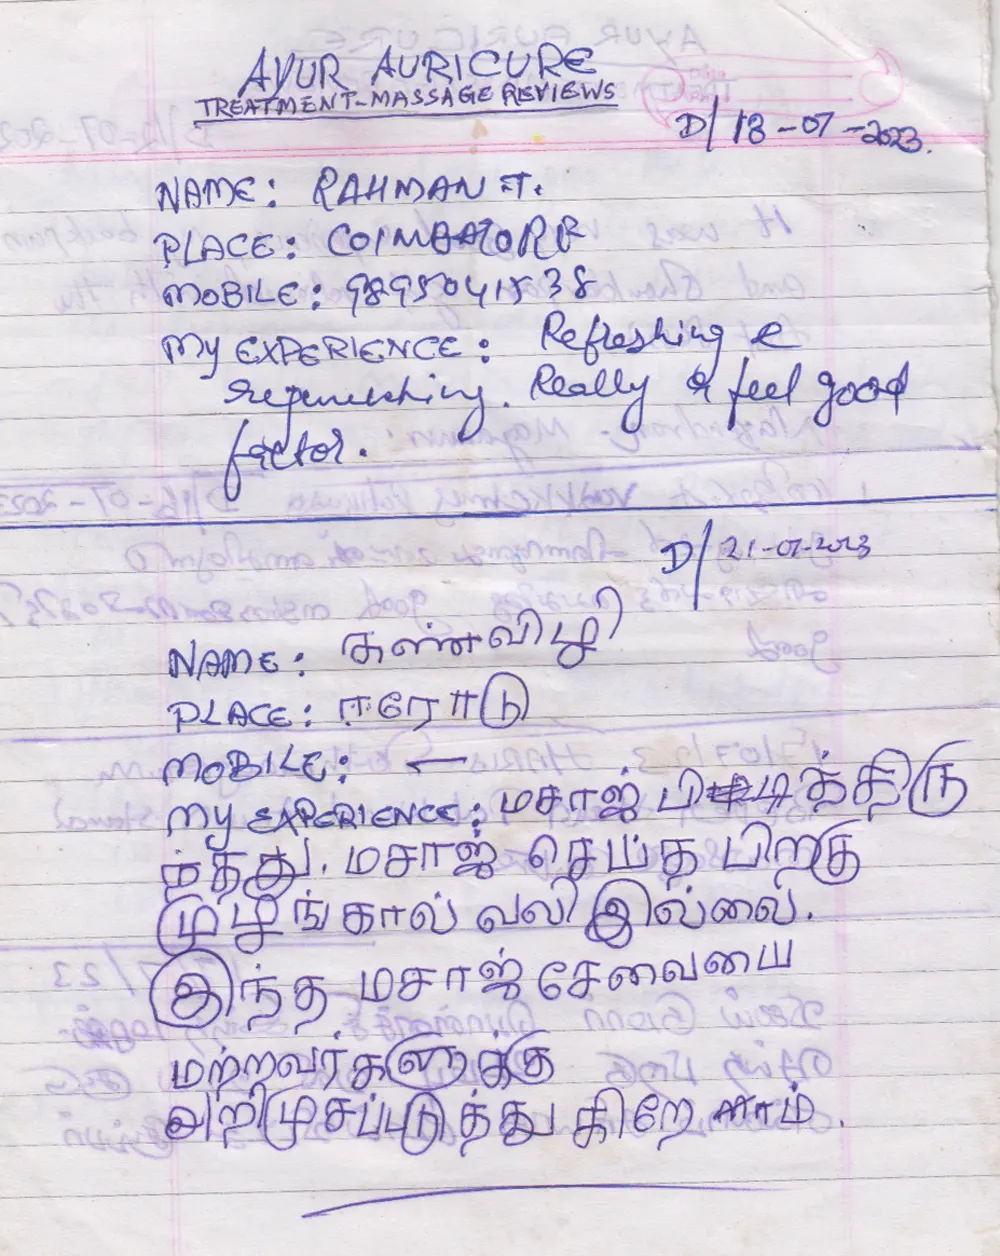 AYUR AURICURE
TREATMENT-MASSAGE REVIEWS
D/ 18-07-2023.
NAME: RAHMAN T.
PLACE: COIMBATORE
MOBILE: 9895041538
MY EXPERIENCE: Refreshing &
Really a feel good
factor.
D/ 21-07-2023
NAME: கண்ணவிழி
PLACE: ஈரோடு
MOBILE: ←
MY EXPERIENCE: மசாஜ் பிடித்திரு
ந்தது. மசாஜ் செய்த பிறகு
முழங்கால் வலி இல்லை.
இந்த மசாஜ் சேவையை
மற்றவர்களுக்கு
அறிமுகப்படுத்துகிறோம்.